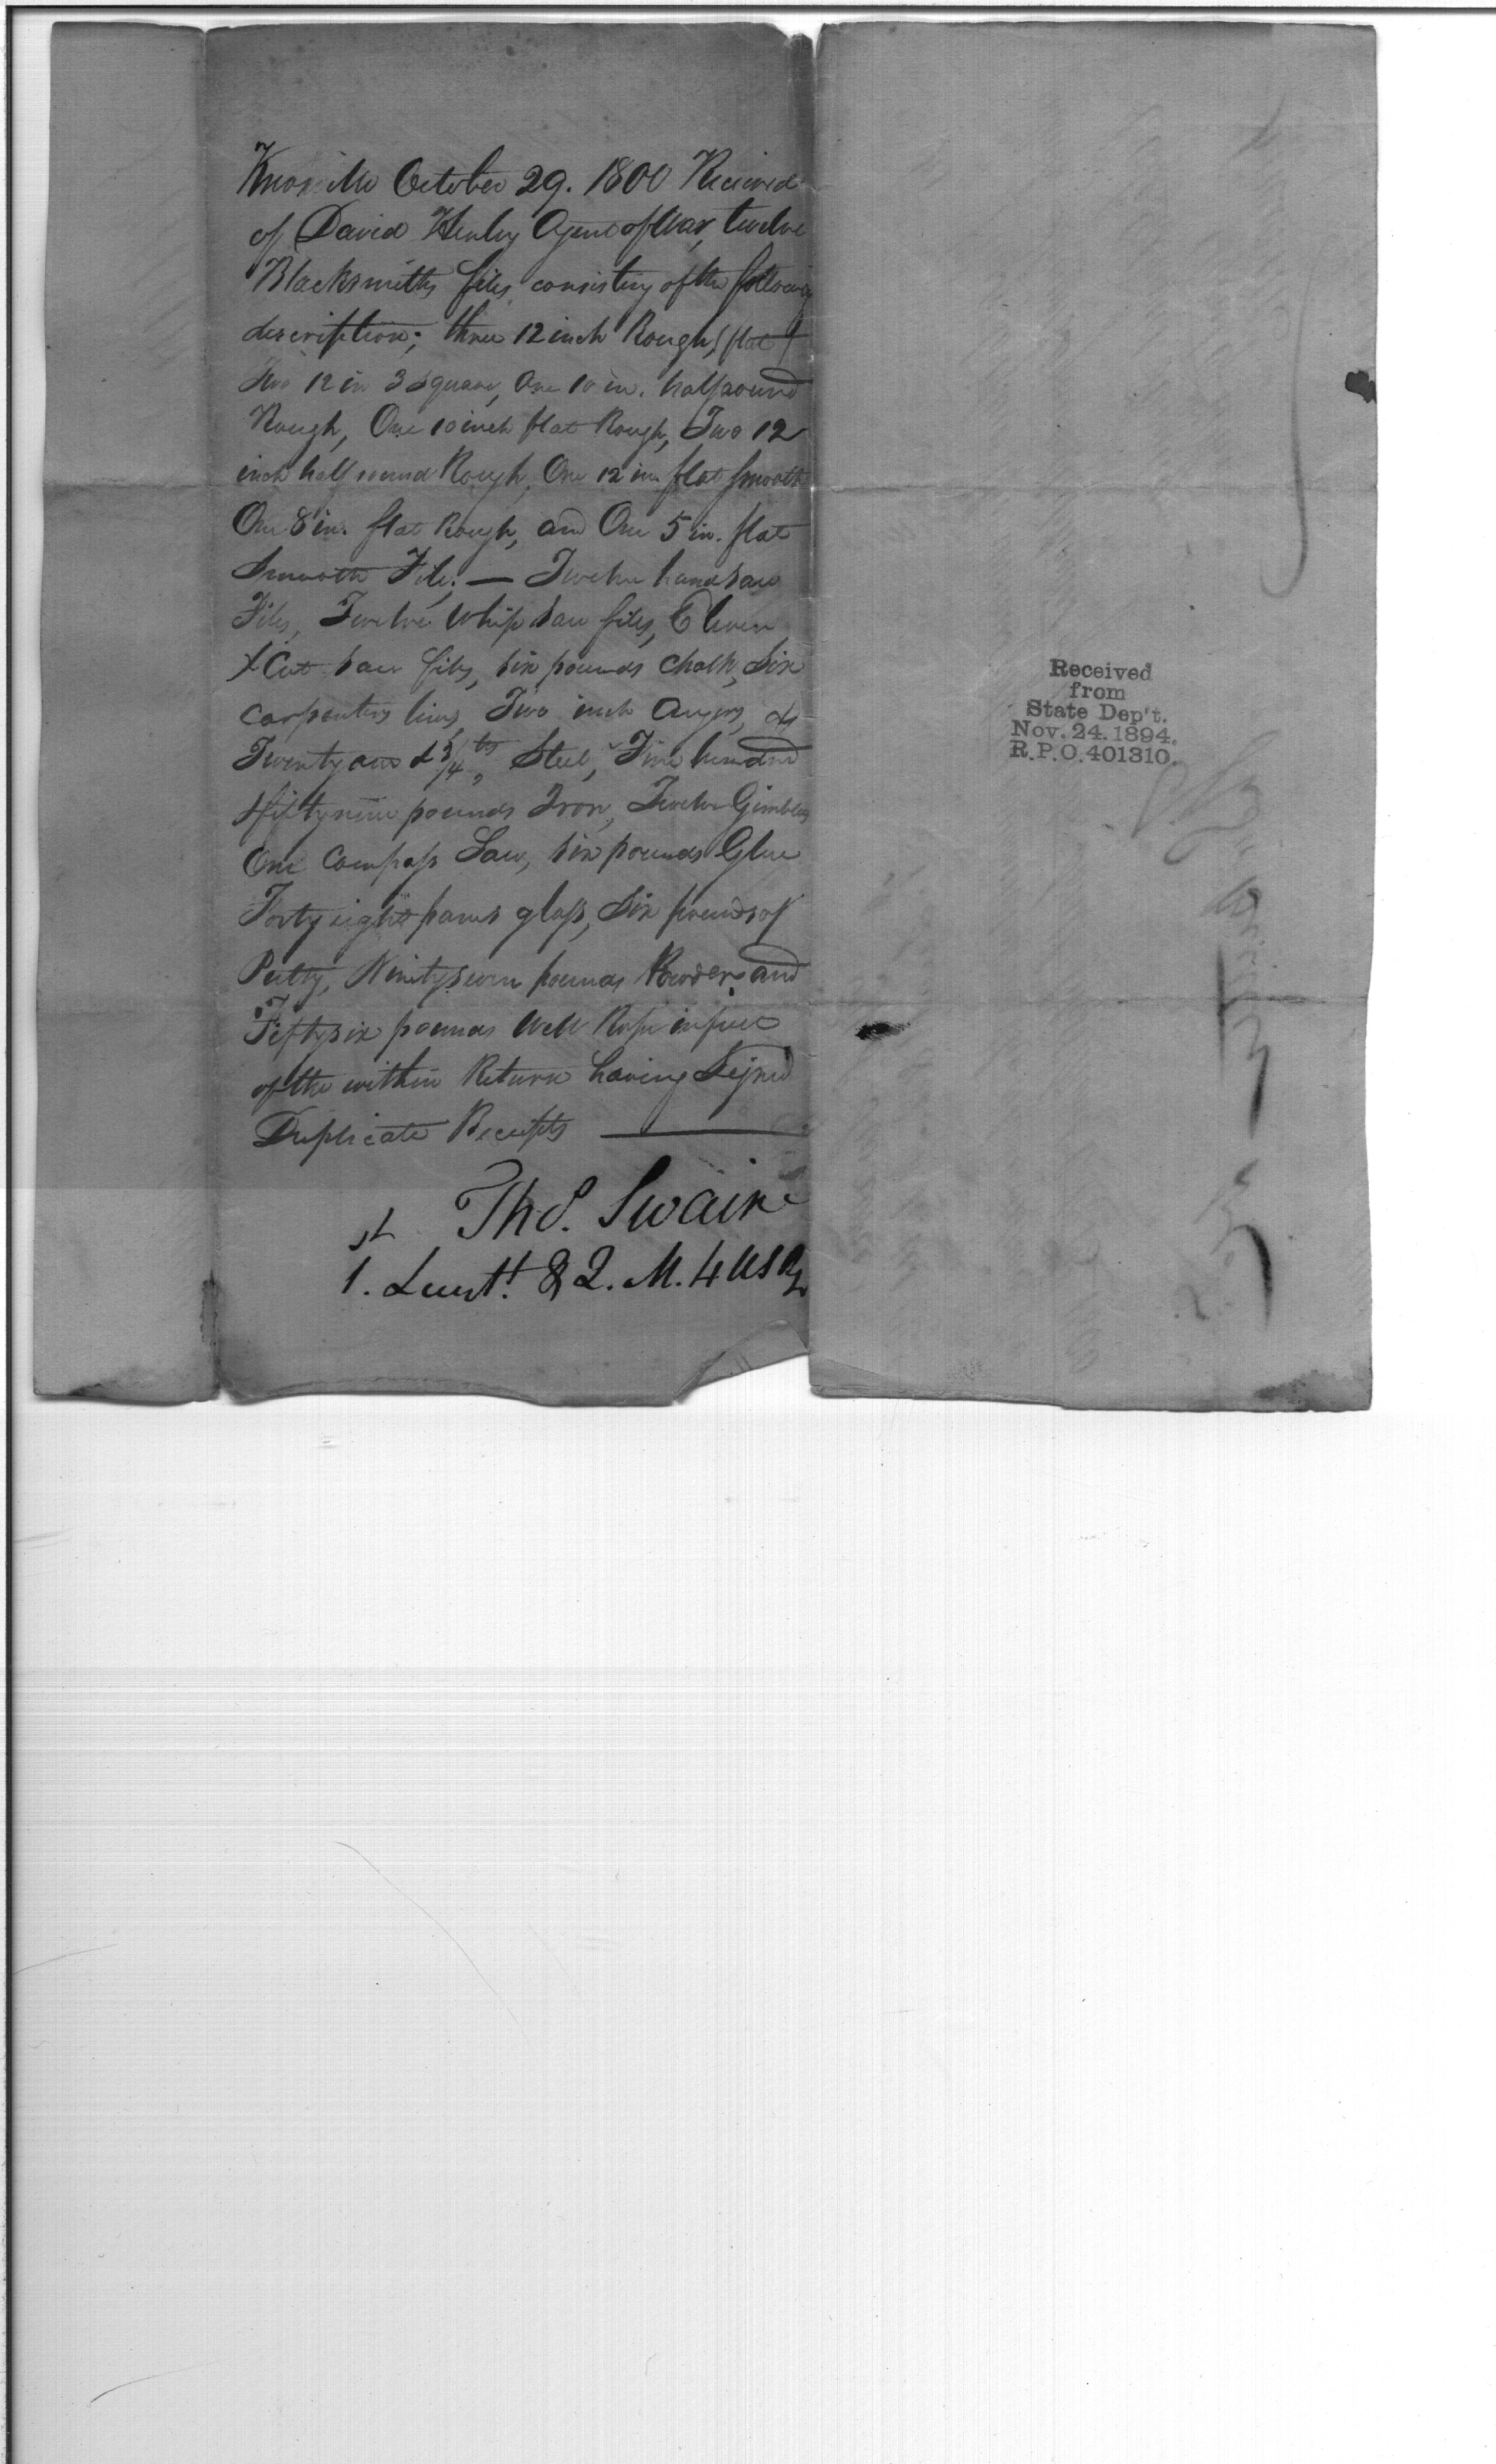 Knoxville October 29. 1800 Received
of David Henley Agent of War, twelve
Blacksmiths files, consisting of the following
description; three 12 inch Rough, flat
Two 12 in 3 square, One 10 in. half round
Rough, One 10 inch flat Rough, Two 12
inch half round Rough, One 12 in flat smooth
One 8 in. flat Rough, and One 5 in. flat
Smooth File; — Twelve handsaw
Files, Twelve Whip saw files, Eleven
X Cut saw files, six pounds Chalk, Six
Carpenters lines, Two inch Augers,
Twenty and 3/4ths Steel, Five hundred
fifty nine pounds Iron, Twelve Gimblets
One Compass Saw, six pounds Glue
Forty eight panes glass, Six pounds of
Putty, Ninety seven pounds Powder, and
Fifty six pounds Well Rope in full
of the within Return having Signed
Duplicate Receipts
Thos. Swaine
1st Lieutt. & Q. M. 4 US Rt
Received
from
State Dep't.
Nov. 24. 1894.
R.P.O. 401310.